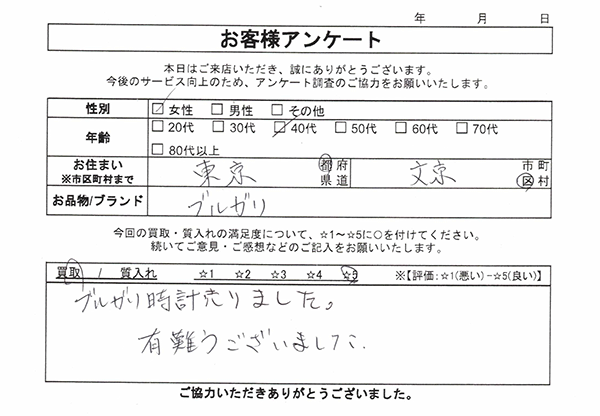 年 月 日
お客様アンケート
本日はご来店いただき、誠にありがとうございます。
今後のサービス向上のため、アンケート調査のご協力をお願いいたします。
性別 ☑ 女性 □ 男性 □ その他
年齢 □ 20代 □ 30代 ☑ 40代 □ 50代 □ 60代 □ 70代
□ 80代以上
お住まい ※市区町村まで 東京 都府県道 文京 市町区村
お品物/ブランド ブルガリ
今回の買取・質入れの満足度について、☆1～☆5に○を付けてください。
続いてご意見・ご感想などのご記入をお願いいたします。
買取 / 質入れ ☆1 ☆2 ☆3 ☆4 ☆5 ※【評価:☆1(悪い)-☆5(良い)】
ブルガリ時計売りました。
有難うございました.
ご協力いただきありがとうございました。